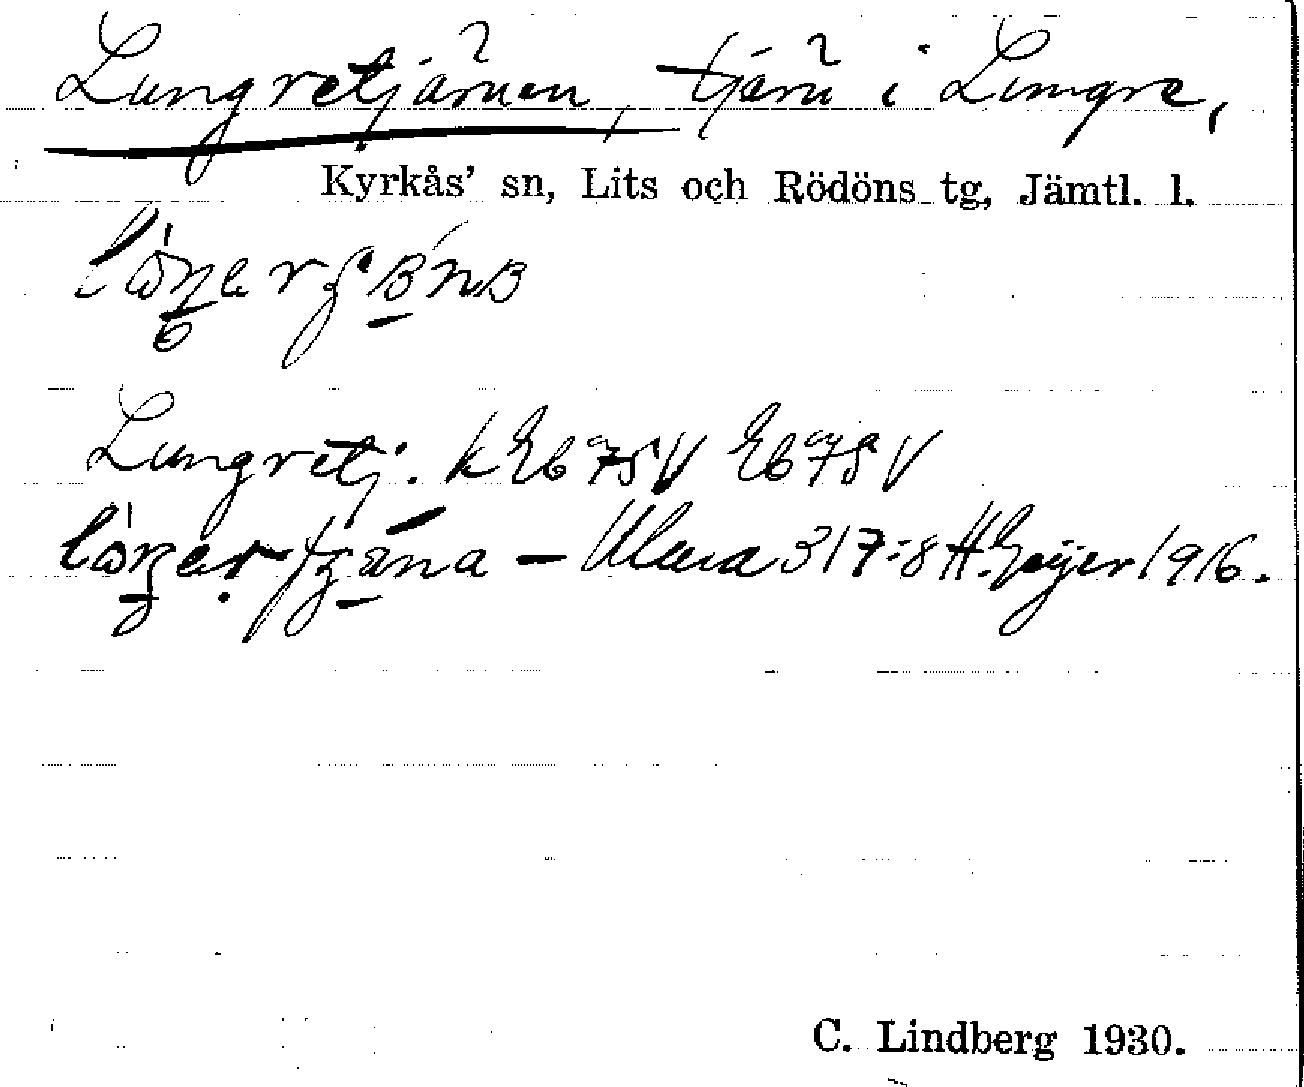 Lungretjärnen, tjärn i Lungre,
Kyrkås' sn, Lits och Rödöns tg, Jämtl. l.
Lungretj. k Eb 75 V Eb 75 V
— Ulma 317:8 H. Geijer 1916.
C. Lindberg 1930.